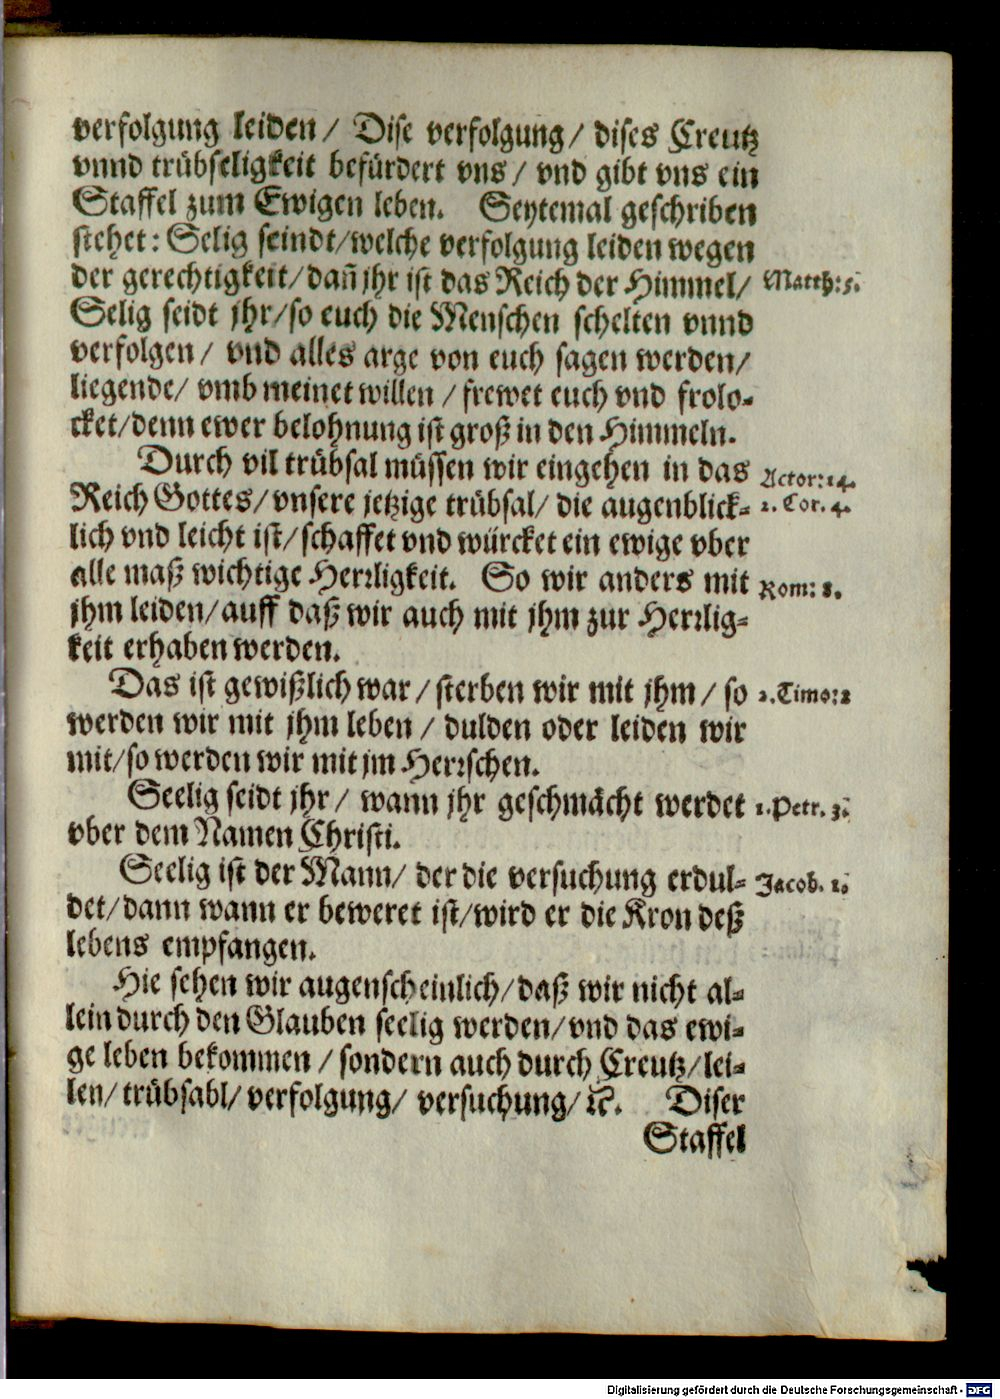 verfolgung leiden / Dise verfolgung / dises Creutz
vnnd trübseligkeit befürdert vns / vnd gibt vns ein
Staffel zum Ewigen leben. Seytemal geschriben
stehet: Selig seindt / welche verfolgung leiden wegen
der gerechtigkeit / dañ jhr ist das Reich der Himmel / Matth: 5.
Selig seidt jhr / so euch die Menschen schelten vnnd
verfolgen / vnd alles arge von euch sagen werden /
liegende / vmb meinet willen / frewet euch vnd frolo-
cket / denn ewer belohnung ist groß in den Himmeln.
Durch vil trübsal müssen wir eingehen in das Actor: 14.
Reich Gottes / vnsere jetzige trübsal / die augenblick- 2. Cor. 4.
lich vnd leicht ist / schaffet vnd würcket ein ewige vber
alle maß wichtige Herrligkeit. So wir anders mit Rom: 8.
jhm leiden / auff daß wir auch mit jhm zur Herrlig-
keit erhaben werden.
Das ist gewißlich war / sterben wir mit jhm / so 2. Timo: 2
werden wir mit jhm leben / dulden oder leiden wir
mit / so werden wir mit jm Herrschen.
Seelig seidt jhr / wann jhr geschmächt werdet 1. Petr. 3.
vber dem Namen Christi.
Seelig ist der Mann / der die versuchung erdul- Jacob. 1.
det / dann wann er beweret ist / wird er die Kron deß
lebens empfangen.
Hie sehen wir augenscheinlich / daß wir nicht al-
lein durch den Glauben seelig werden / vnd das ewi-
ge leben bekommen / sondern auch durch Creutz / lei-
len / trübsabl / verfolgung / versuchung / ꝛc. Diser
Staffel
Digitalisierung gefördert durch die Deutsche Forschungsgemeinschaft - DFG